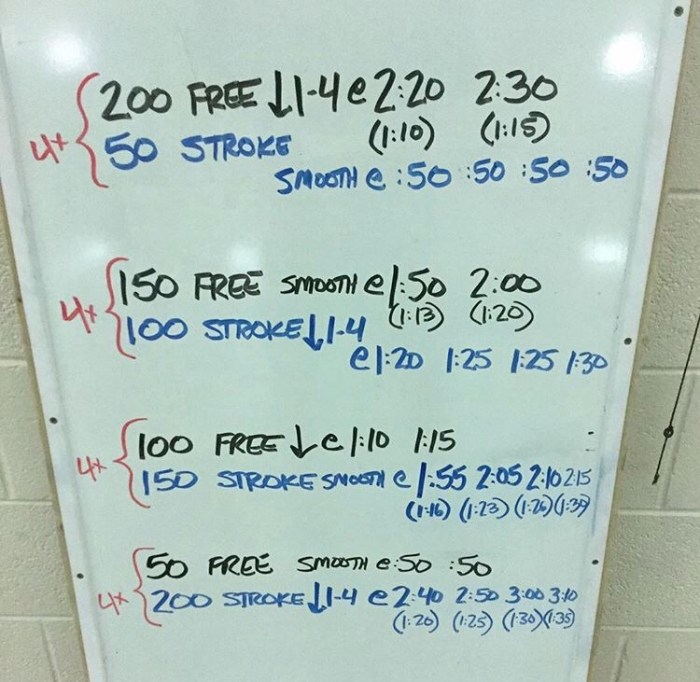 200 FREE ↓1-4 @ 2:20 2:30
(1:10) (1:15)
4x
50 STROKE
SMOOTH @ :50 :50 :50 :50
150 FREE SMOOTH @ 1:50 2:00
(1:13) (1:20)
4x
100 STROKE ↓1-4
@ 1:20 1:25 1:25 1:30
100 FREE ↓ @ 1:10 1:15
4x
150 STROKE SMOOTH @ 1:55 2:05 2:10 2:15
(1:16) (1:23) (1:26)
50 FREE SMOOTH @ :50 :50
4x
200 STROKE ↓1-4 @ 2:40 2:50 3:00 3:10
(1:20) (1:25) (1:30) (1:35)